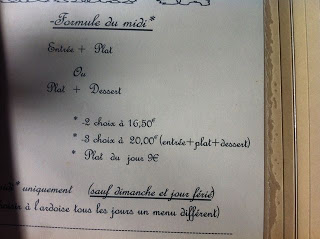 -Formule du midi*
Entrée + Plat
Ou
Plat + Dessert
* -2 choix à 16,50€
* -3 choix à 20,00€ (entrée+plat+dessert)
* Plat du jour 9€
uniquement (sauf dimanche et jour férié)
à l'ardoise tous les jours un menu différent)